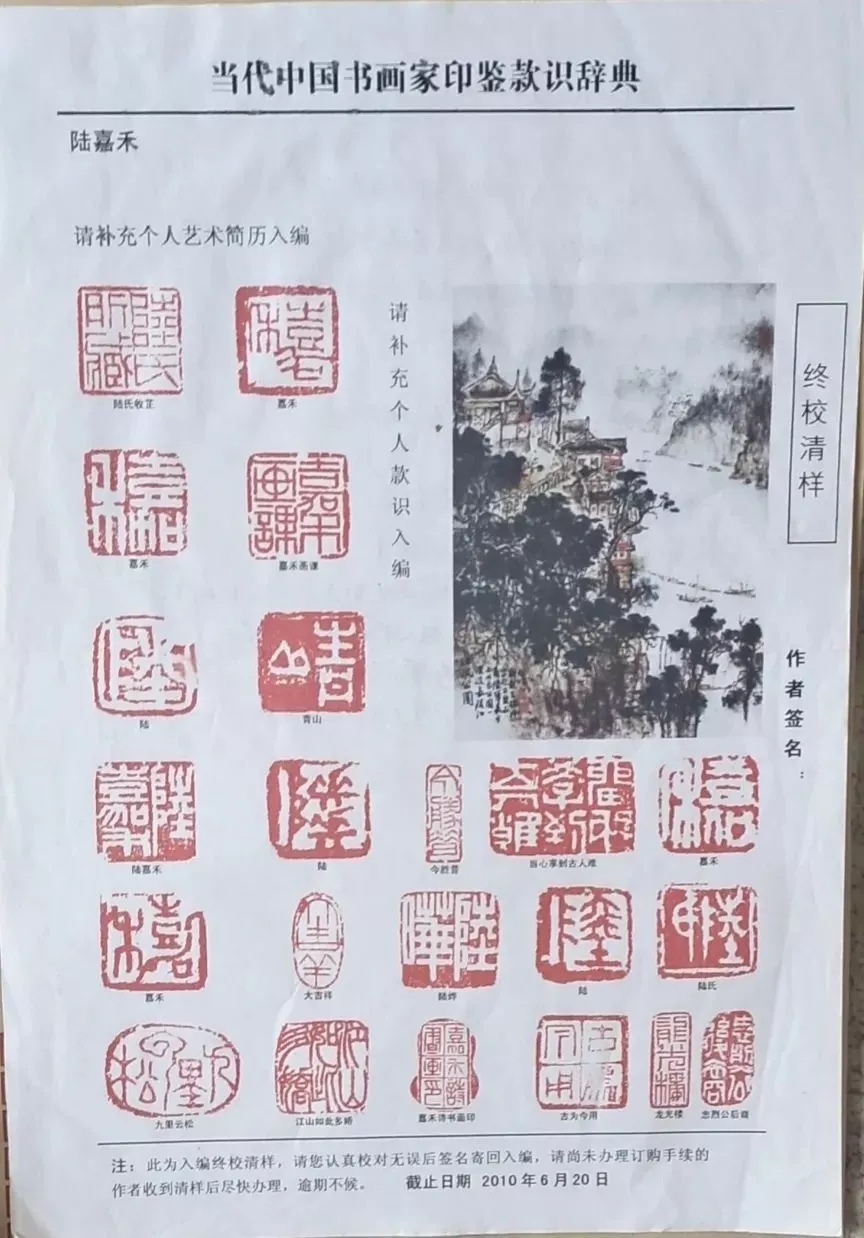 当代中国书画家印鉴款识辞典
陆嘉禾
请补充个人艺术简历入编
陆氏收芷
嘉禾
请补充个人款识入编
终校清样
嘉禾
嘉禾画课
陆
青山
作者签名：
陆嘉禾
陆
今胜昔
嘉禾
嘉禾
大吉祥
陆烨
陆
陆氏
九里云松
江山如此多娇
嘉禾诗书画印
古为今用
龙光楼
忠烈公后裔
注：此为入编终校清样，请您认真校对无误后签名寄回入编，请尚未办理订购手续的
作者收到清样后尽快办理，逾期不候。 截止日期 2010年6月20日